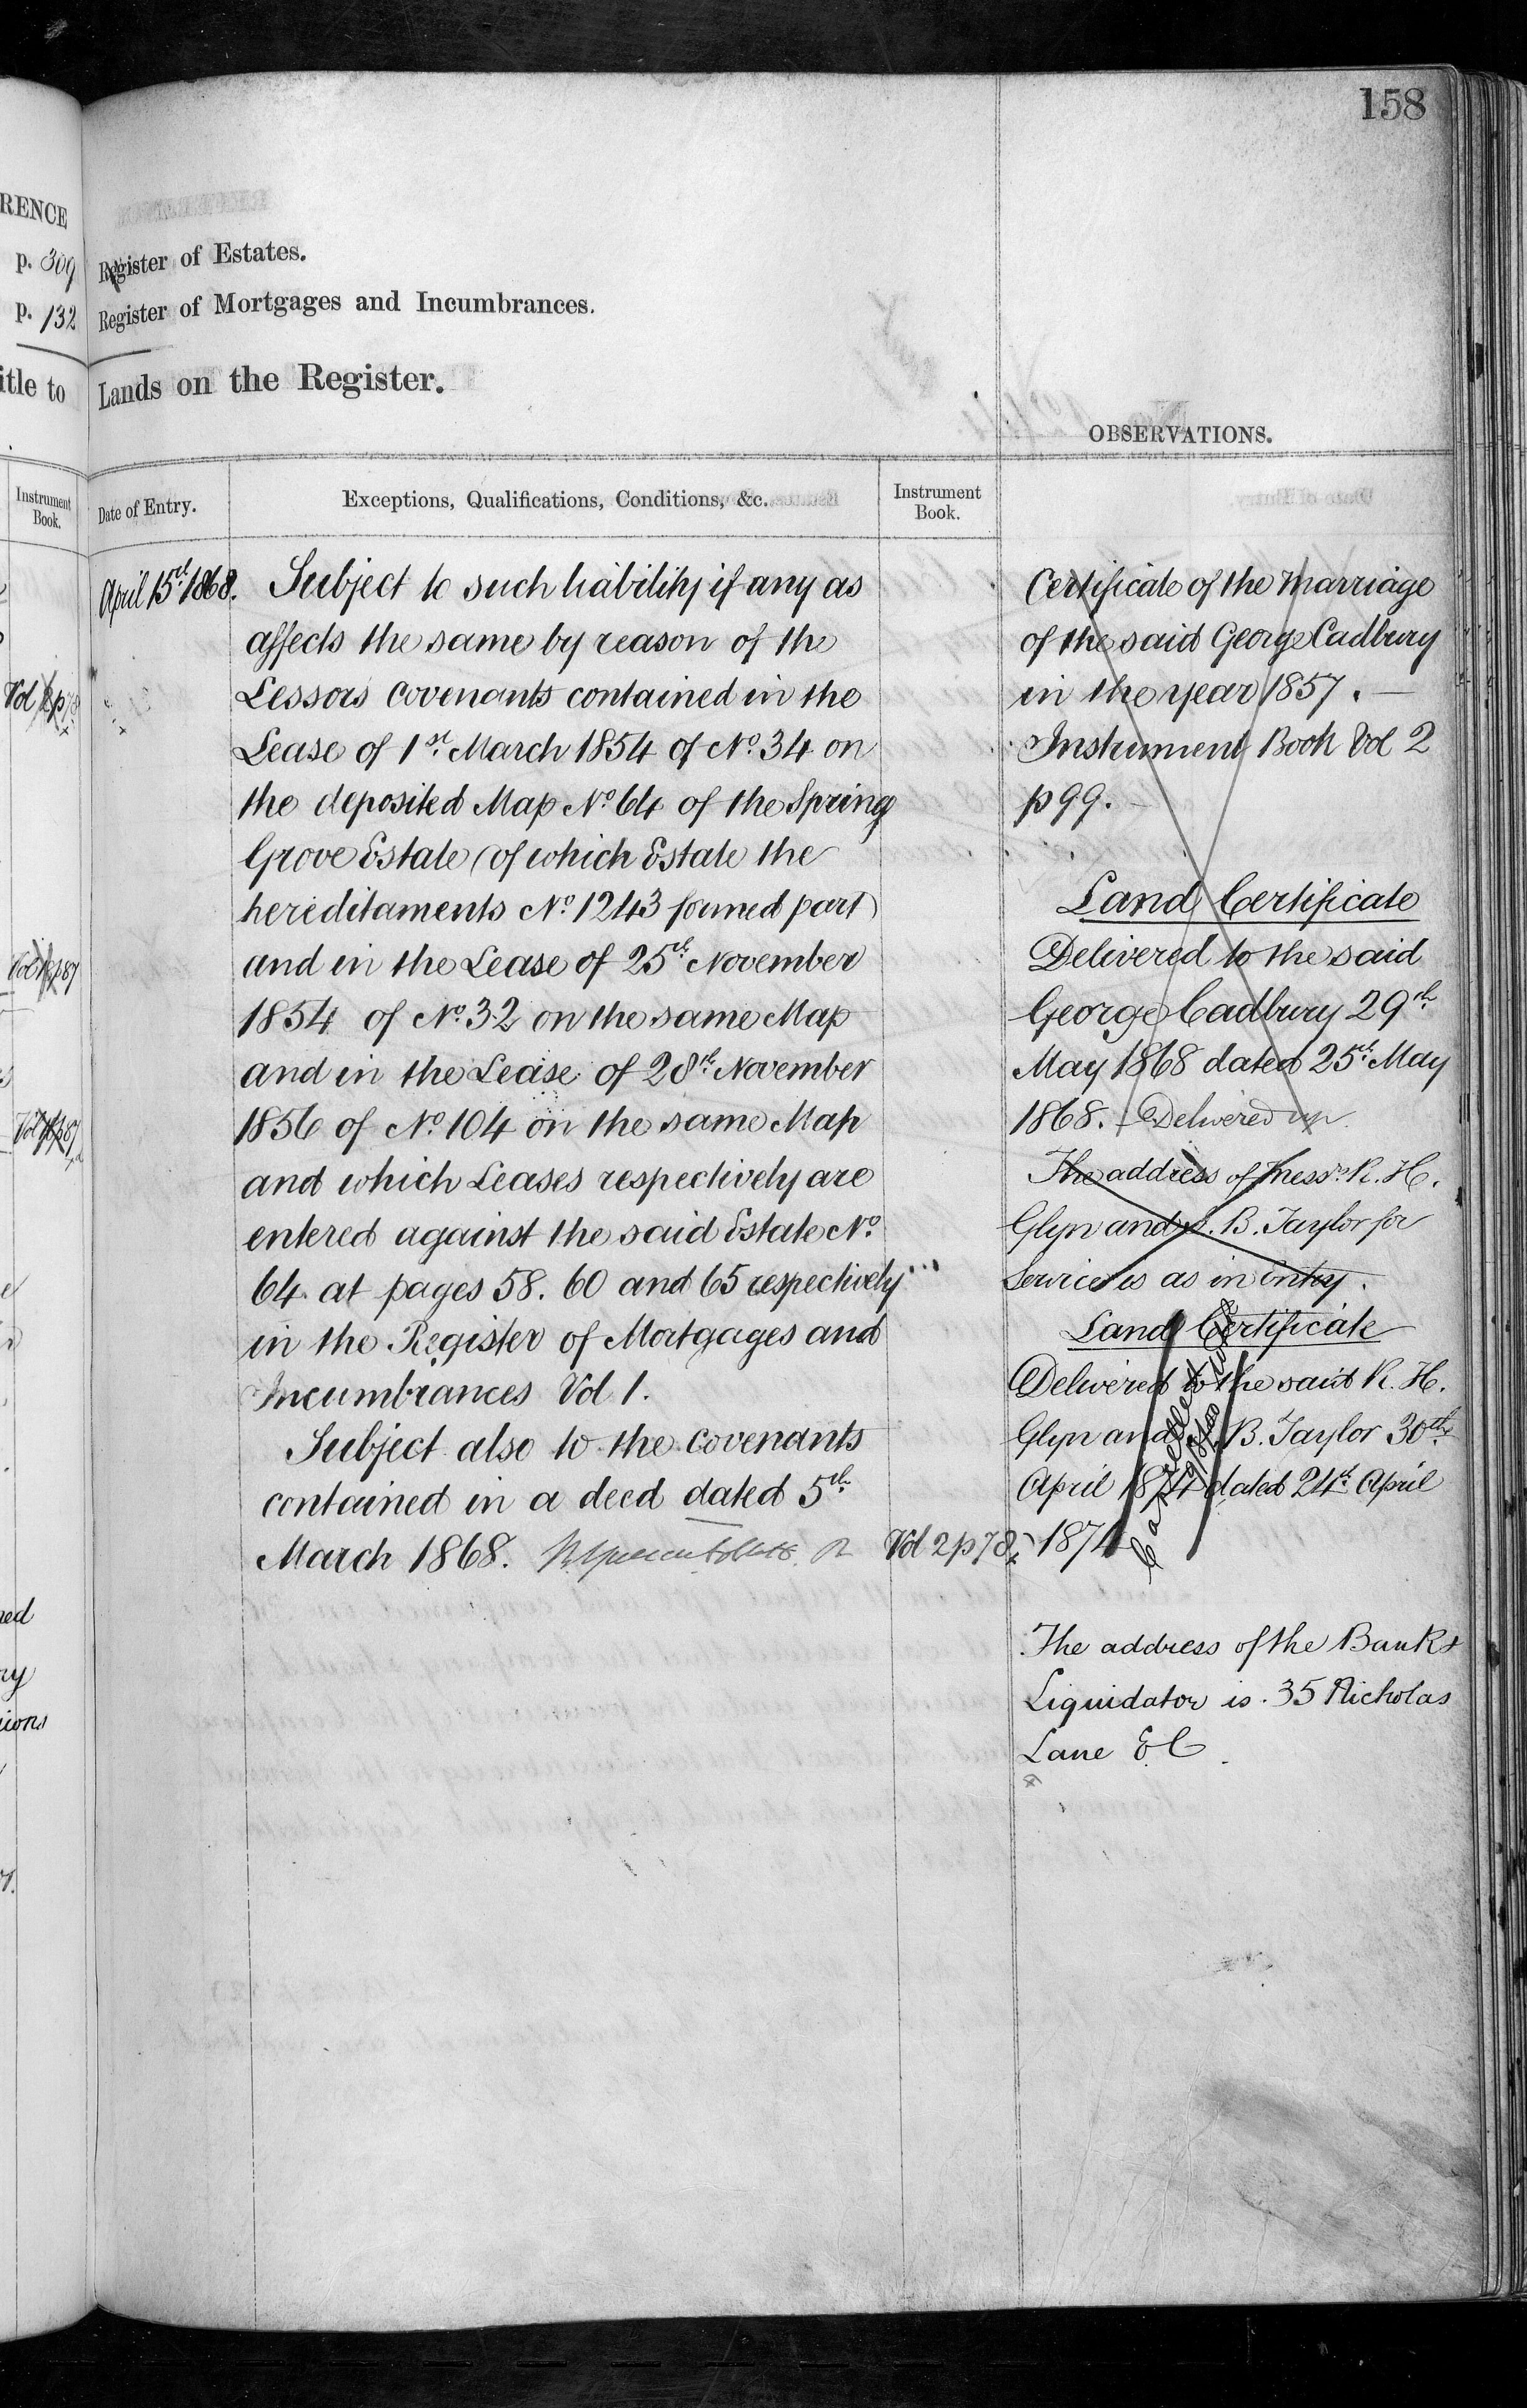 158
RENCE
p. 309
Register of Estates.
p. 132
Register of Mortgages and Incumbrances.
itle to
Lands on the Register.
OBSERVATIONS.
Instrument
Book.
Date of Entry.
Exceptions, Qualifications, Conditions, &c.
Instrument
Book.
April 15th 1868.
Subject to such liability if any as
affects the same by reason of the
Lessors covenants contained in the
Lease of 1st March 1854 of No. 34 on
the deposited Map No. 64 of the Spring
Grove Estate (of which Estate the
hereditaments No. 1243 formed part)
and in the Lease of 25th November
1854 of No. 32 on the same Map
and in the Lease of 28th November
1856 of No. 104 on the same Map
and which Leases respectively are
entered against the said Estate No.
64 at pages 58. 60 and 65 respectively
in the Register of Mortgages and
Incumbrances Vol 1.
Subject also to the covenants
contained in a deed dated 5th
March 1868.
Vol 2 p 78
Certificate of the Marriage
of the said George Cadbury
in the year 1857.
Instrument Book Vol 2
p 99.
Land Certificate
Delivered to the said
George Cadbury 29th
May 1868 dated 25th May
1868. - Delivered up
The address of Messrs. R. H.
Glyn and . B. Taylor for
Service is as in Entry.
Land Certificate
Delivered to the said R. H.
Glyn and . B. Taylor 30th
April 1874 dated 24th April
1874
Cancelled
The address of the Banks
Liquidator is. 35 Nicholas
Lane E.C.